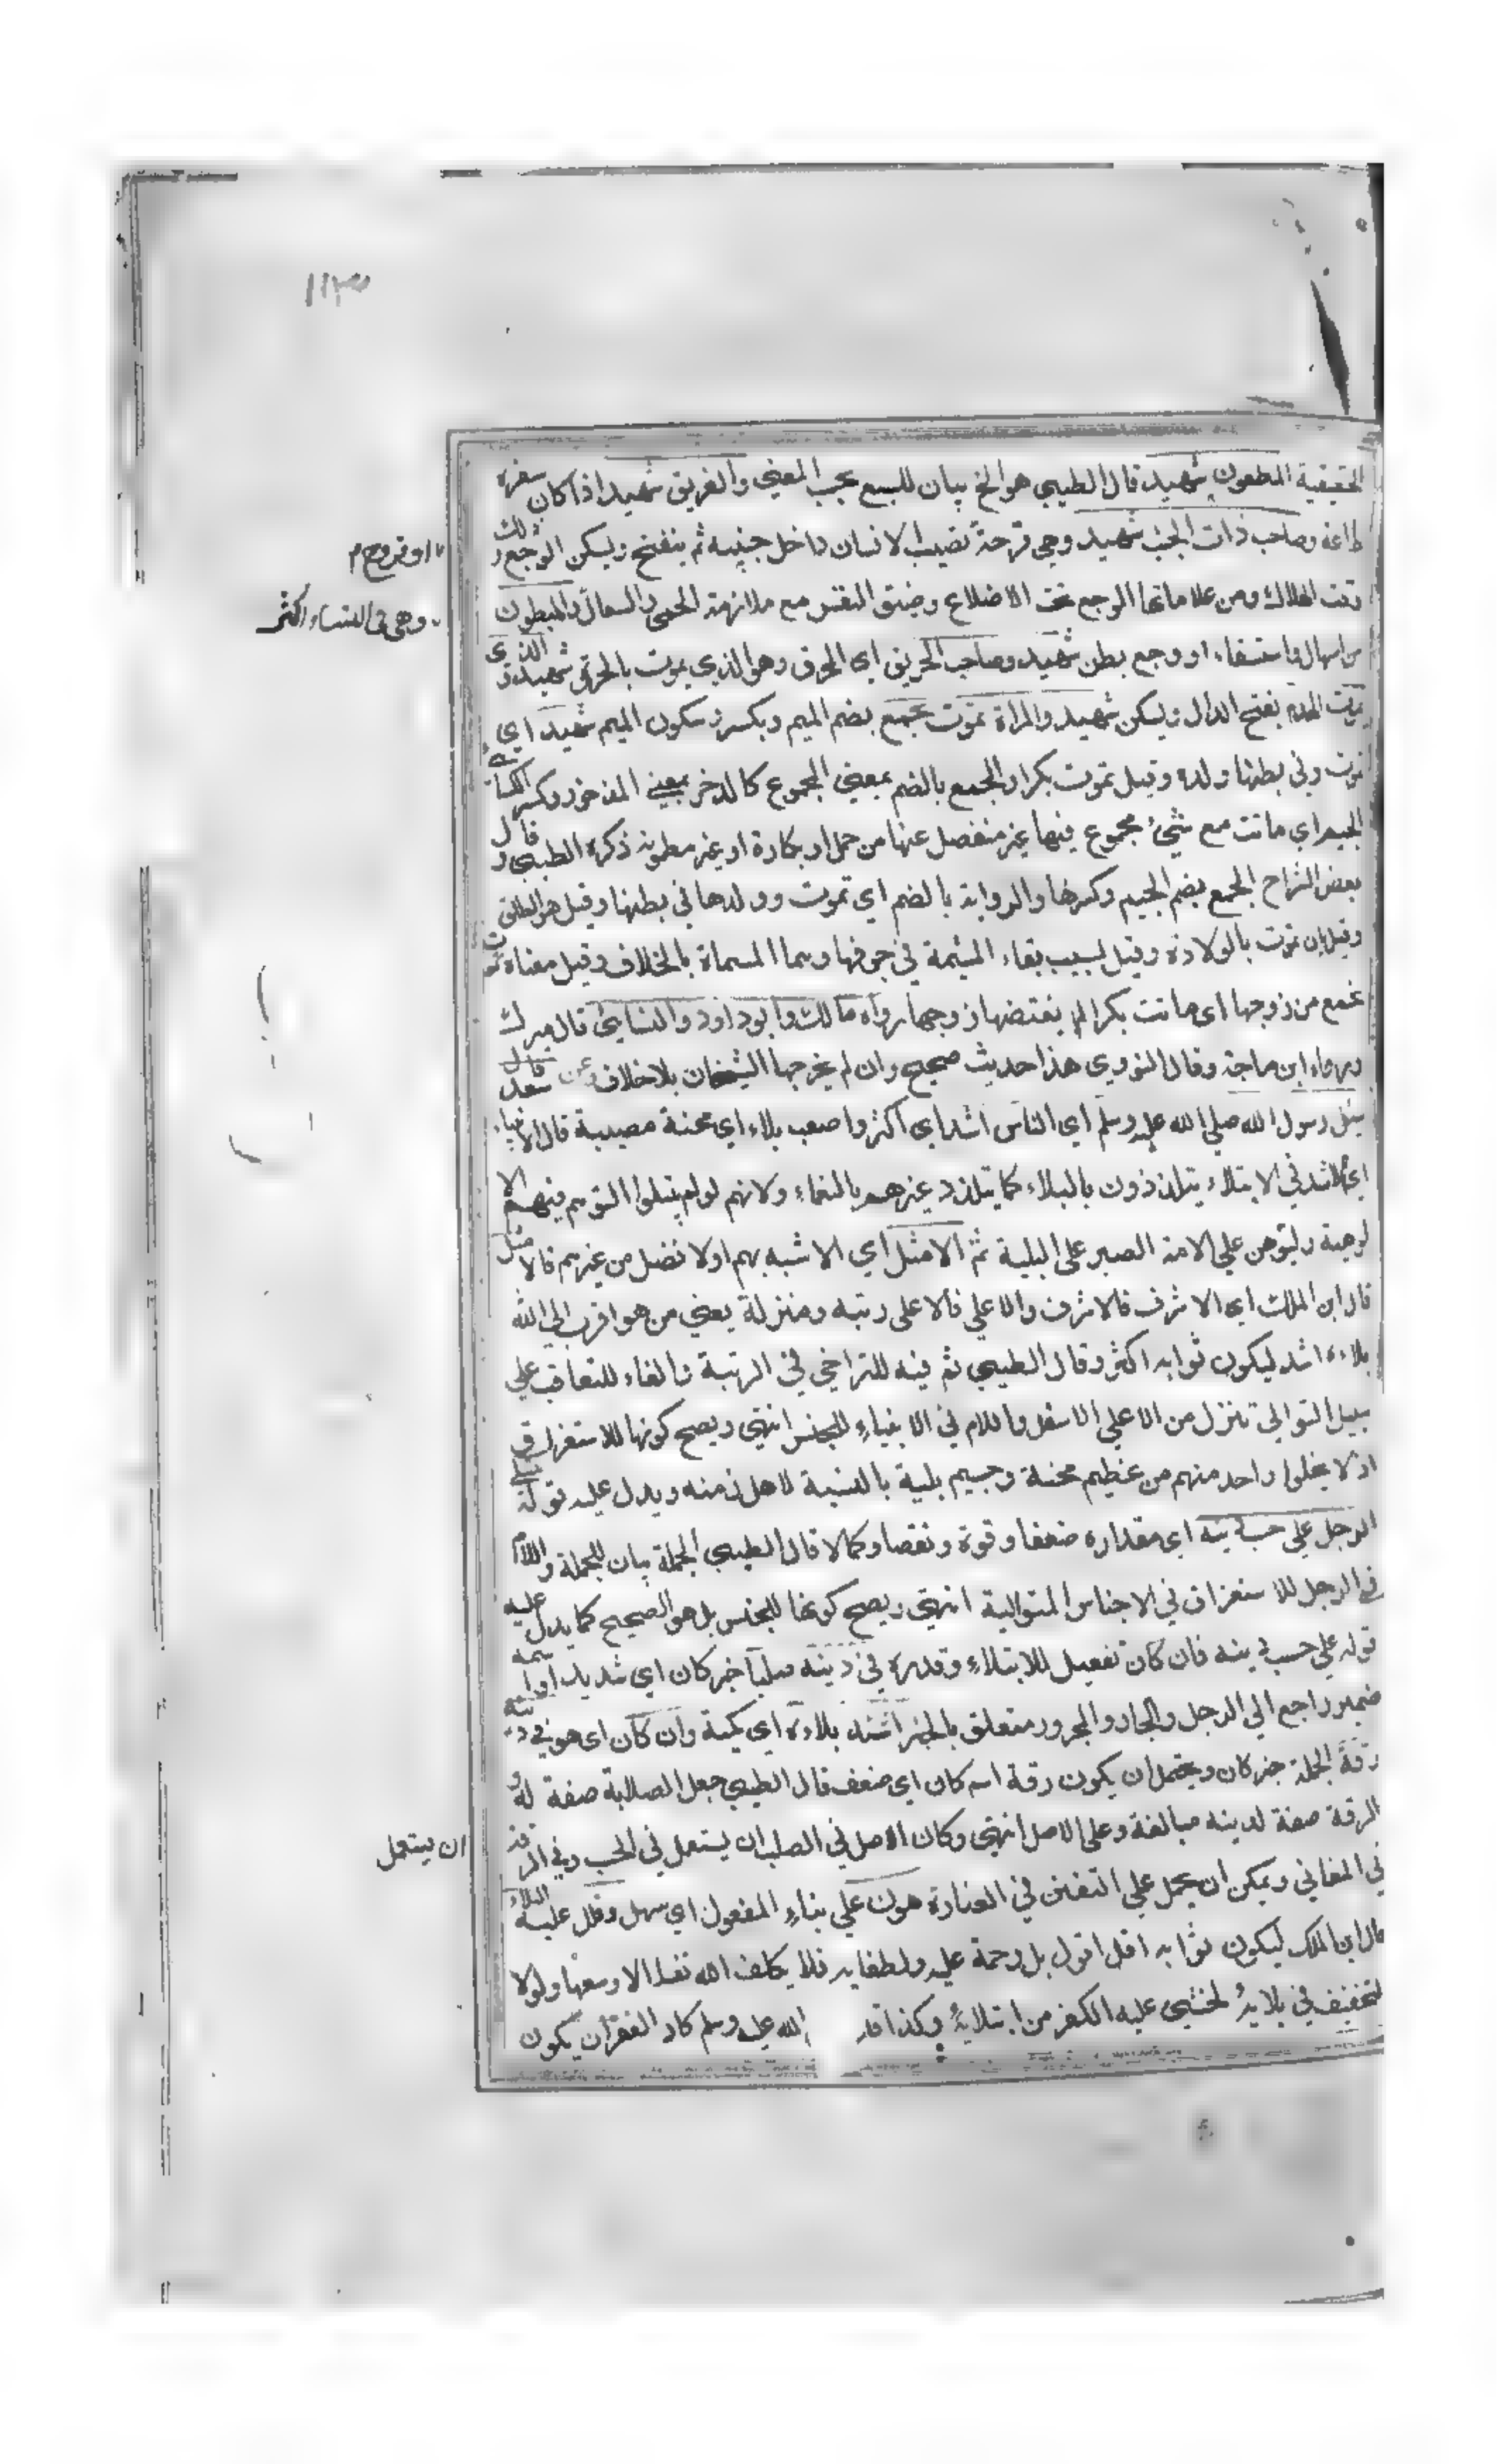 ١١٣
الحقيقية المطعون شهيد قال الطيبي هو الخ بيان للسبع بحسب المعني والغريق شهيد اذا كان سفره
طاعة وصاحب ذات الجنب شهيد وهي قرحة تصيب الانسان داخل جنبه ثم ينفتح ويسكن الوجع وذلك
او قروح م
وقت الهلاك ومن علاماتها الوجع تحت الاضلاع وضيق النفس مع ملازمة الحمى والسعال والمبطون
وهي في النساء اكثر
من اسهال واستسقاء او وجع بطن شهيد وصاحب الحريق اى المحرق وهو الذي يموت بالحرق شهيد والذي
يموت الهدم بفتح الدال ويسكن شهيد والمراة تموت بجمع بضم الميم وبكسر وسكون الميم شهيد اي
تموت وفي بطنها ولد وقيل تموت بكرا والجمع بالضم بمعني المجموع كالذخر بمعني المذخور وكسر الكسائي
الجيم اي ماتت مع شيئ مجموع فيها غير منفصل عنها من حمل او بكارة او غير مطموثة ذكره الطيبي وقال
بعض الشراح الجمع بضم الجيم وكسرها والرواية بالضم اي تموت وولدها في بطنها وقيل هو الطلق
وقيل ان تموت بالولادة وقيل بسبب بقاء المشيمة في جوفها وهما المسماة بالخلاف وقيل معناه تموت
بجمع من زوجها اى ماتت بكرا لم يفتضها زوجها رواه مالك وابو داود والنسائي قال ميرك
ورواه ابن ماجة وقال النووي هذا حديث صحيح وان لم يخرجها الشيخان بلا خلاف وعن سعد قال
سئل رسول الله صلي الله عليه وسلم اي الناس اشد اي اكثر واصعب بلاء اي محنة مصيبة قال الانبياء
اي الاشد في الابتلاء يتلذذون بالبلاء كما يتلذذ غيرهم بالنعماء ولانهم لو لم يبتلوا لتوهم فيهم الا
لوهية وليوهن علي الامة الصبر على البلية ثم الامثل اي الاشبه بهم اولا فضل من غيرهم فالامثل
قال ابن الملك اى الاشرف فالاشرف والاعلي فالاعلى رتبة ومنزلة يعني من هو اقرب الي الله
بلاءه اشد ليكون ثوابه اكثر وقال الطيبي ثم فيه للتراخي في الرتبة والفاء للتعاقب علي
سبيل التوالي تنزل من الاعلي الاسفل واللام في الانبياء للجنس انتهى ويصح كونها للاستغراق
اذ لا يخلوا واحد منهم من عظيم محنة وجسيم بلية بالنسبة لاهل زمنه ويدل عليه قوله يبتلى
الرجل علي حسب دينه اي مقداره ضعفا وقوة ونقصا وكمالا قال الطيبي الجملة بيان للجملة واللام
في الرجل للاستغراق في الاجناس المتوالية انتهي ويصح كونها للجنس بل هو الصحيح كما يدل عليه
قوله علي حسب دينه فان كان تفصيل للابتلاء وقدره في دينه صلبا خبر كان اي شديد او اسمه
ضمير راجع الي الرجل والجار والمجرور متعلق بالخبر اشتد بلاءه اى كمية وان كان اى هو في دينه
رقة الجملة خبر كان ويحتمل ان يكون رقة اسم كان اي ضعف قال الطيبي جعل الصلابة صفة له و
الرقة صفة لدينه مبالغة وعلى الاصل انتهى وكان الاصل في الصلب ان يستعمل في الحب وفي الرقة
ان يستعمل
في المعاني ويمكن ان يحمل علي التفنن في العبارة هون علي بناء المفعول اي سهل وقلل عليه البلاء
قال ابن الملك ليكون ثوابه اقل اقول بل رحمة عليه ولطفا به فلا يكلف الله نفسا الا وسعها ولولا
التخفيف في بلايه لخشي عليه الكفر من ابتلايه وكذا قد الله عليه وسلم كاد الفقر ان يكون